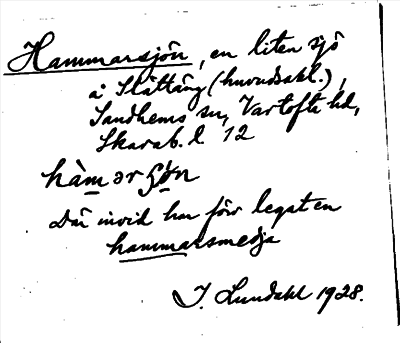 Hammarsjön, en liten sjö
å Slättäng (huvudsakl.),
Sandhems sn, Vartofta hd,
Skarab. l 12
hàmərʃön
Där invid har förr legat en
hammarsmedja
J. Lundahl 1928.